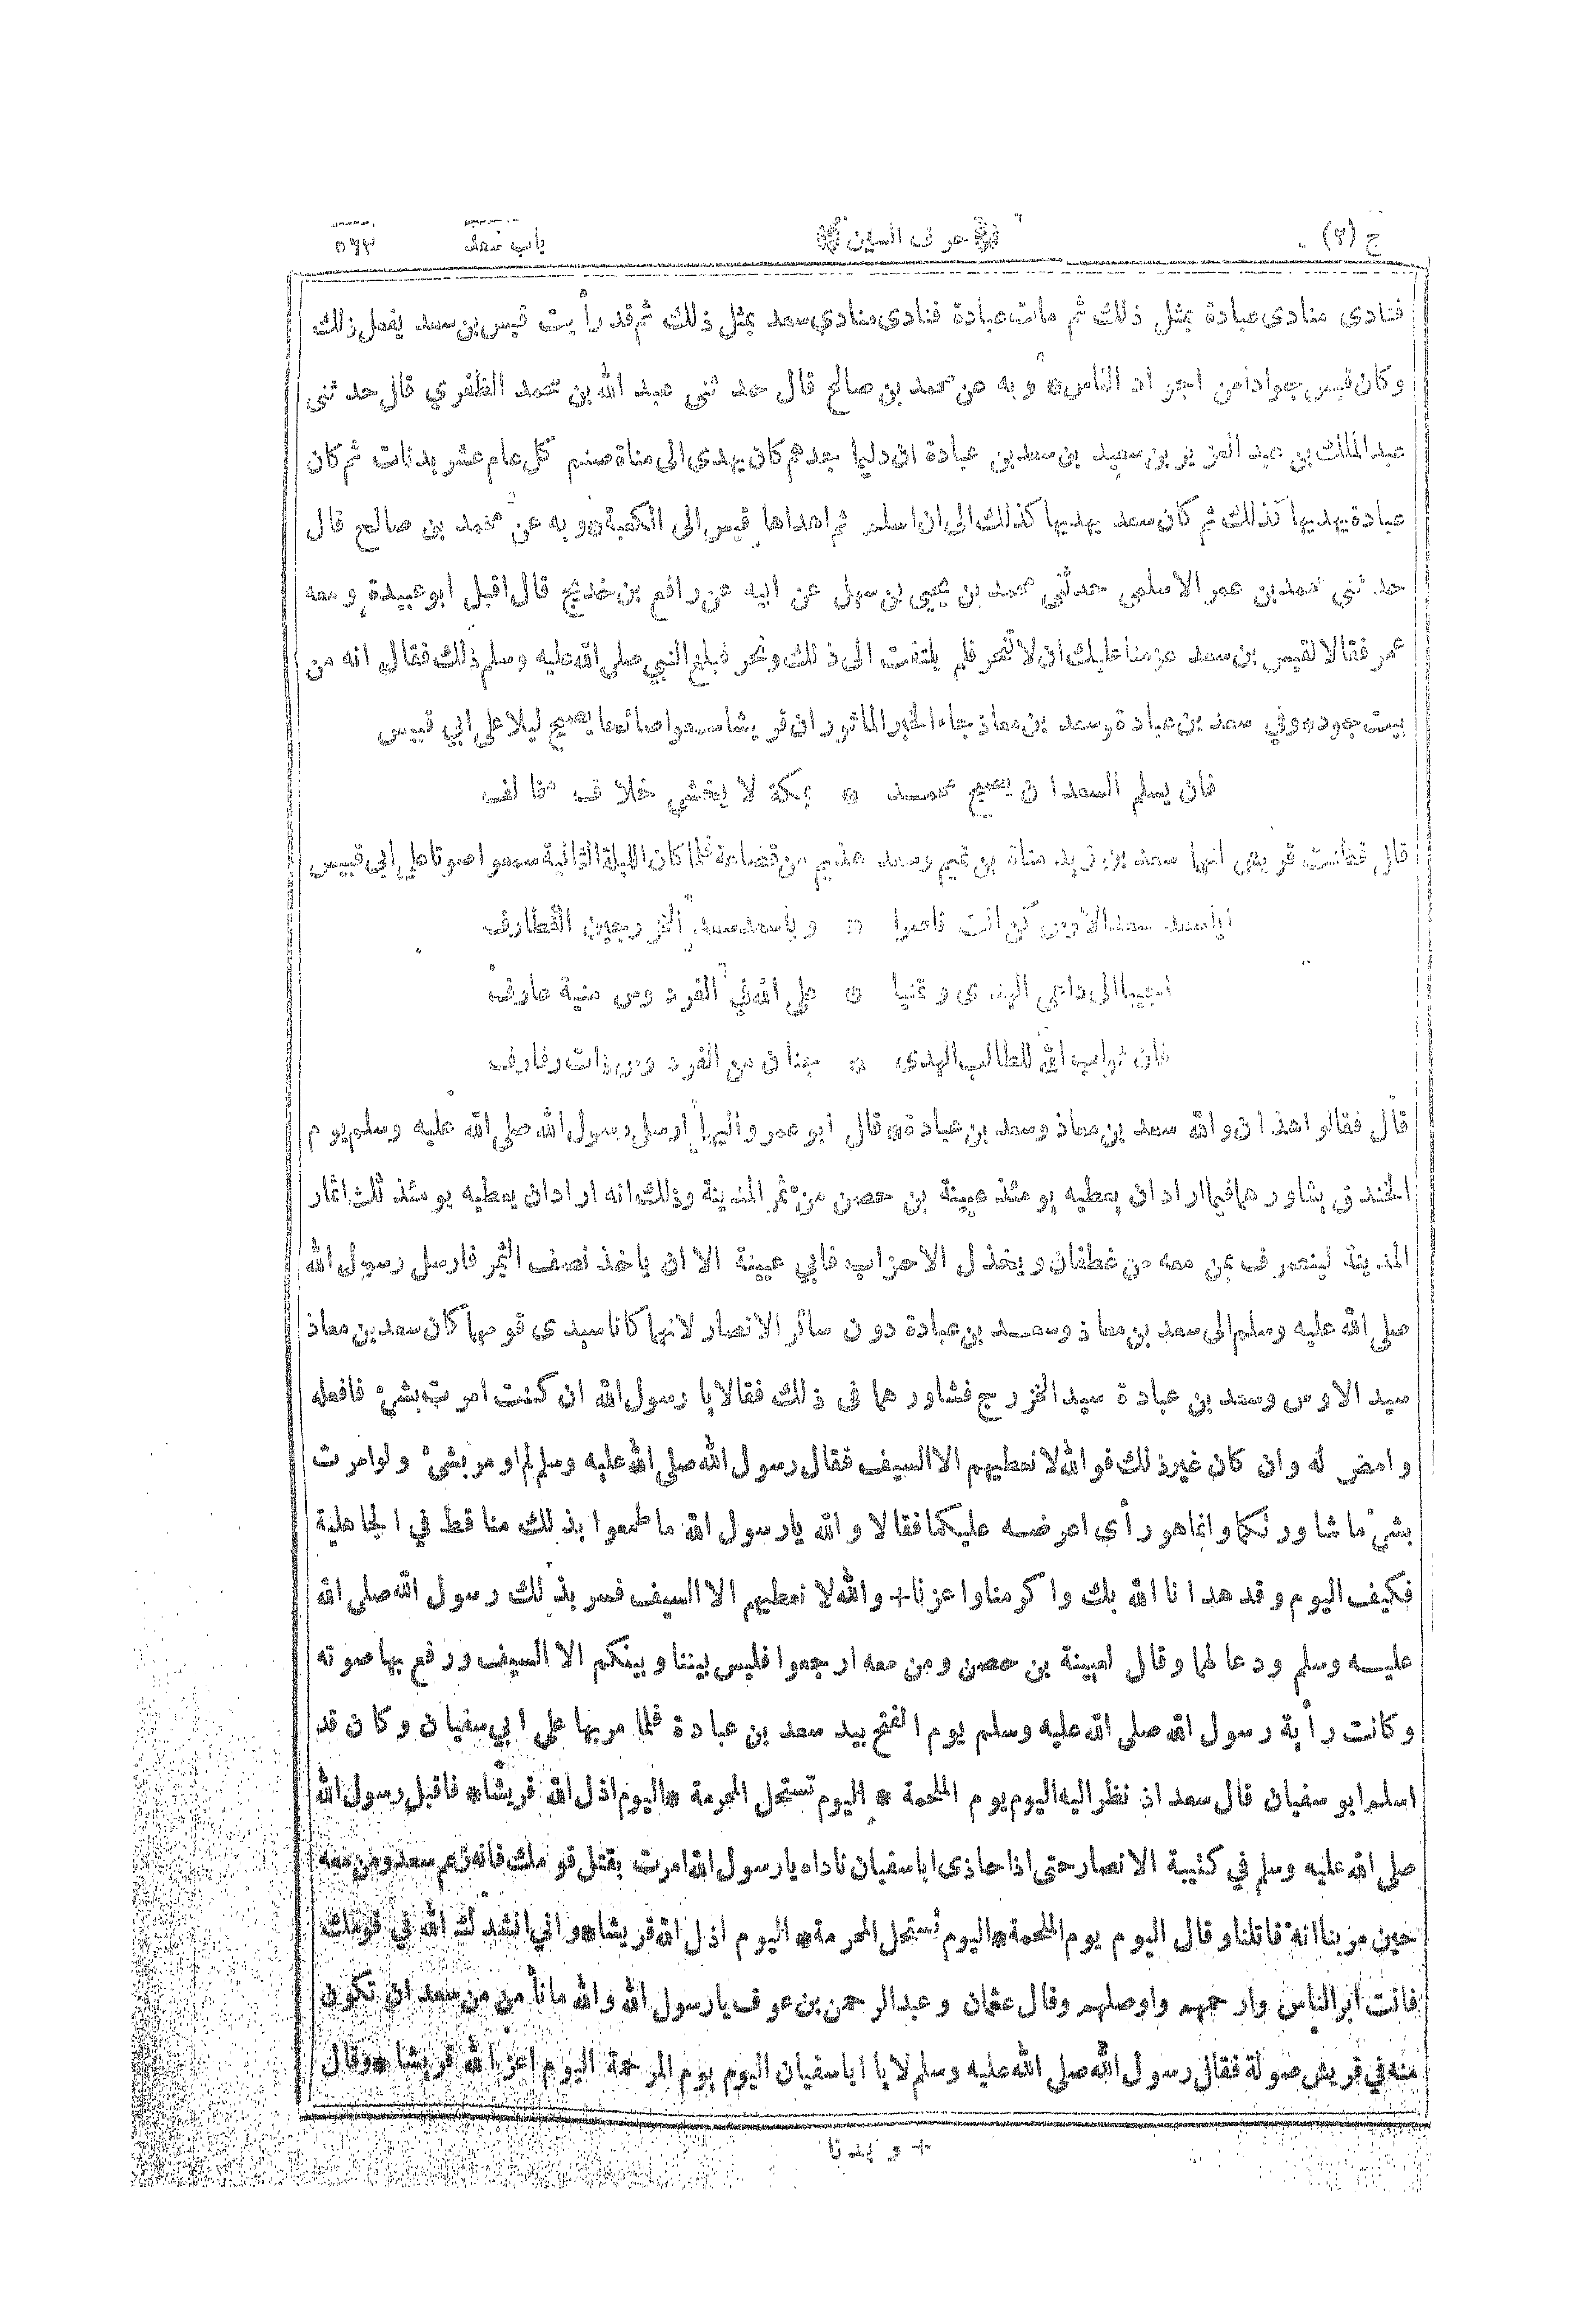 ج (٢) حرف السين باب سعد ٥٦٣
فنادى منادى عبادة بمثل ذلك ثم مات عبادة فنادى منادي سعد بمثل ذلك ثم قد رأيت قيس بن سعد يفعل ذلك
وكان قيس جوادا من اجواد الناس * وبه عن محمد بن صالح قال حدثنى عبد الله بن محمد الظفري قال حدثنى
عبد الملك بن عبد العزيز بن سعيد بن سعد بن عبادة ان دليما جدهم كان يهدى الى مناة صنم كل عام عشر بدنات ثم كان
عبادة يهديها كذلك ثم كان سعد يهديها كذلك الى ان اسلم ثم اهداها قيس الى الكعبة * وبه عن محمد بن صالح قال
حدثنى محمد بن عمر الاسلمى حدثنى محمد بن يحيى بن سهل عن ابيه عن رافع بن خديج قال اقبل ابو عبيدة ومعه
عمر فقالا لقيس بن سعد عزمنا عليك ان لا تنحر فلم يلتفت الى ذلك ونحر فبلغ النبي صلى الله عليه وسلم ذلك فقال انه من
بيت جود * وفي سعد بن عبادة وسعد بن معاذ جاء الخبر الماثور ان قريشا سمعوا صائحا يصيح ليلا على ابي قبيس
فان يسلم السعدان يصبح محمد * بمكة لا يخشى خلاف مخالف
قال فظنت قريش انهما سعد بن زيد مناة بن تميم وسعد هذيم من قضاعة فلما كان الليلة الثانية سمعوا صوتا على ابي قبيس
ايا سعد سعد الاوس كن انت ناصرا * ويا سعد سعد الخزرجين الغطارف
اجيبا الى داعي الهدى وتمنيا * على الله في الفردوس منية عارف
فان ثواب الله للطالب الهدى * جنان من الفردوس ذات رفارف
قال فقالوا هذان والله سعد بن معاذ وسعد بن عبادة * قال ابو عمر واليهما ارسل رسول الله صلى الله عليه وسلم يوم
الخندق يشاورهما فيما اراد ان يعطيه يومئذ عيينة بن حصن من تمر المدينة وذلك انه اراد ان يعطيه يومئذ ثلث اثمار
المدينة لينصرف بمن معه من غطفان ويخذل الاحزاب فابى عيينة الا ان ياخذ نصف الثمر فارسل رسول الله
صلى الله عليه وسلم الى سعد بن معاذ وسعد بن عبادة دون سائر الانصار لانهما كانا سيدى قومهما كان سعد بن معاذ
سيد الاوس وسعد بن عبادة سيد الخزرج فشاورهما فى ذلك فقالا يا رسول الله ان كنت امرت بشئ فافعله
وامض له وان كان غير ذلك فوالله لا نعطيهم الا السيف فقال رسول الله صلى الله عليه وسلم لم اومر بشئ ولو امرت
بشئ ما شاورتكما وانما هو رأى اعرضه عليكما فقالا والله يا رسول الله ما طمعوا بذلك منا قط في الجاهلية
فكيف اليوم وقد هدانا الله بك واكرمنا واعزنا + والله لا نعطيهم الا السيف فسر بذلك رسول الله صلى الله
عليه وسلم ودعا لهما وقال لعيينة بن حصن ومن معه ارجعوا فليس بيننا وبينكم الا السيف ورفع بها صوته
وكانت رأية رسول الله صلى الله عليه وسلم يوم الفتح بيد سعد بن عبادة فلما مر بها على ابي سفيان وكان قد
اسلم ابو سفيان قال سعد اذ نظر اليه اليوم يوم الملحمة * اليوم تستحل المحرمة * اليوم اذل الله قريشا * فاقبل رسول الله
صلى الله عليه وسلم في كتيبة الانصار حتى اذا حاذى ابا سفيان ناداه يا رسول الله امرت بقتل قومك فانه زعم سعد ومن معه
حين مر بنا انه قاتلنا وقال اليوم يوم الملحمة * اليوم تستحل المحرمة * اليوم اذل الله قريشا * واني انشدك الله في قومك
فانت ابر الناس وارحمهم واوصلهم وقال عثمان وعبد الرحمن بن عوف يا رسول الله والله ما نأمن من سعد ان تكون
منه في قريش صولة فقال رسول الله صلى الله عليه وسلم لا يا ابا سفيان اليوم يوم المرحمة اليوم اعز الله قريشا * وقال
+ و بدنا